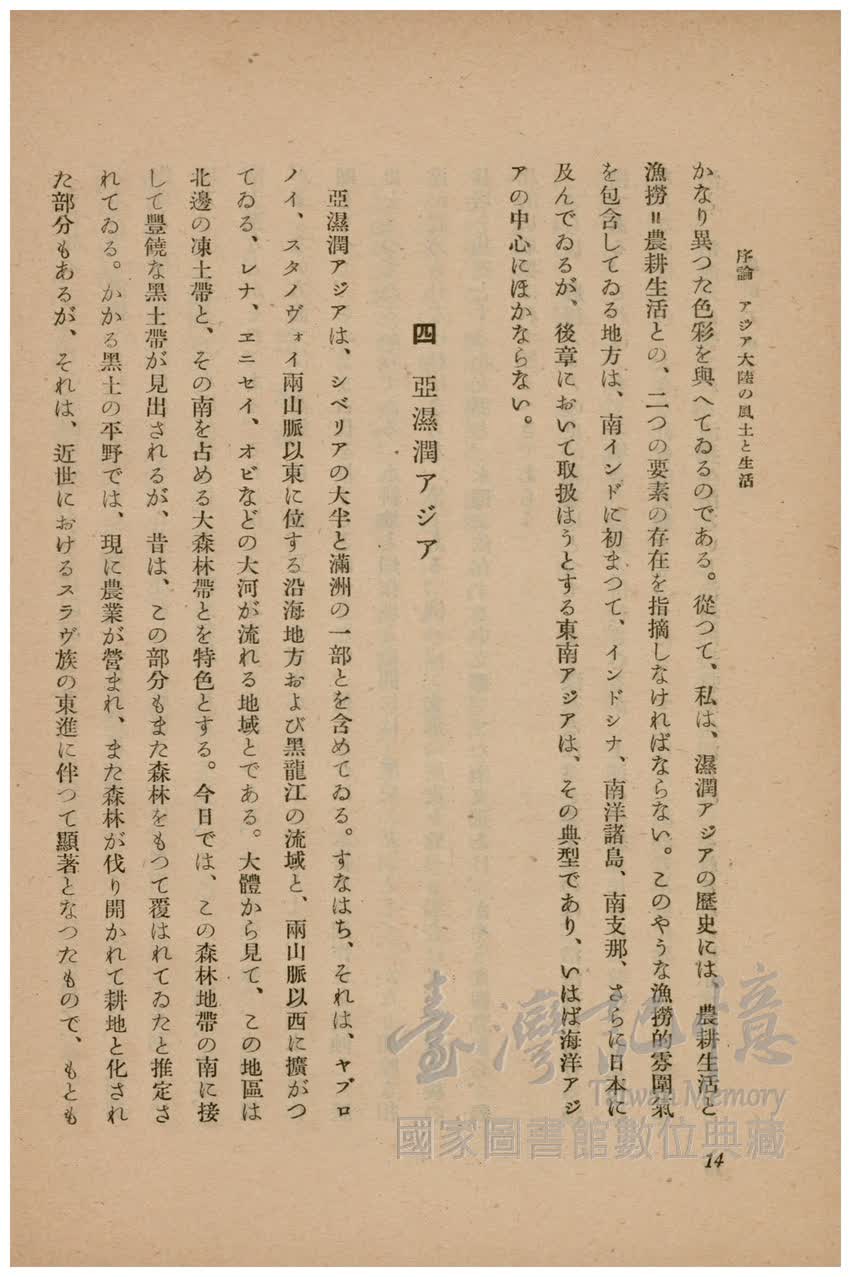 序論　アジア大陸の風土と生活
かなり異つた色彩を與へてゐるのである。從つて、私は、濕潤アジアの歷史には、農耕生活と
漁撈＝農耕生活との、二つの要素の存在を指摘しなければならない。このやうな漁撈的雰圍氣
を包含してゐる地方は、南インドに初まつて、インドシナ、南洋諸島、南支那、さらに日本に
及んでゐるが、後章において取扱はうとする東南アジアは、その典型であり、いはば海洋アジ
アの中心にほかならない。
四　亞濕潤アジア
亞濕潤アジアは、シベリアの大半と滿洲の一部とを含めてゐる。すなはち、それは、ヤブロ
ノイ、スタノヴォイ兩山脈以東に位する沿海地方および黑龍江の流域と、兩山脈以西に擴がつ
てゐる、レナ、ヱニセイ、オビなどの大河が流れる地域とである。大體から見て、この地區は
北邊の凍土帶と、その南を占める大森林帶とを特色とする。今日では、この森林地帶の南に接
して豐饒な黑土帶が見出されるが、昔は、この部分もまた森林をもつて覆はれてゐたと推定さ
れてゐる。かかる黑土の平野では、現に農業が營まれ、また森林が伐り開かれて耕地と化され
た部分もあるが、それは、近世におけるスラヴ族の東進に伴つて顯著となつたもので、もとも
14
臺灣記憶
Taiwan Memory
國家圖書館數位典藏